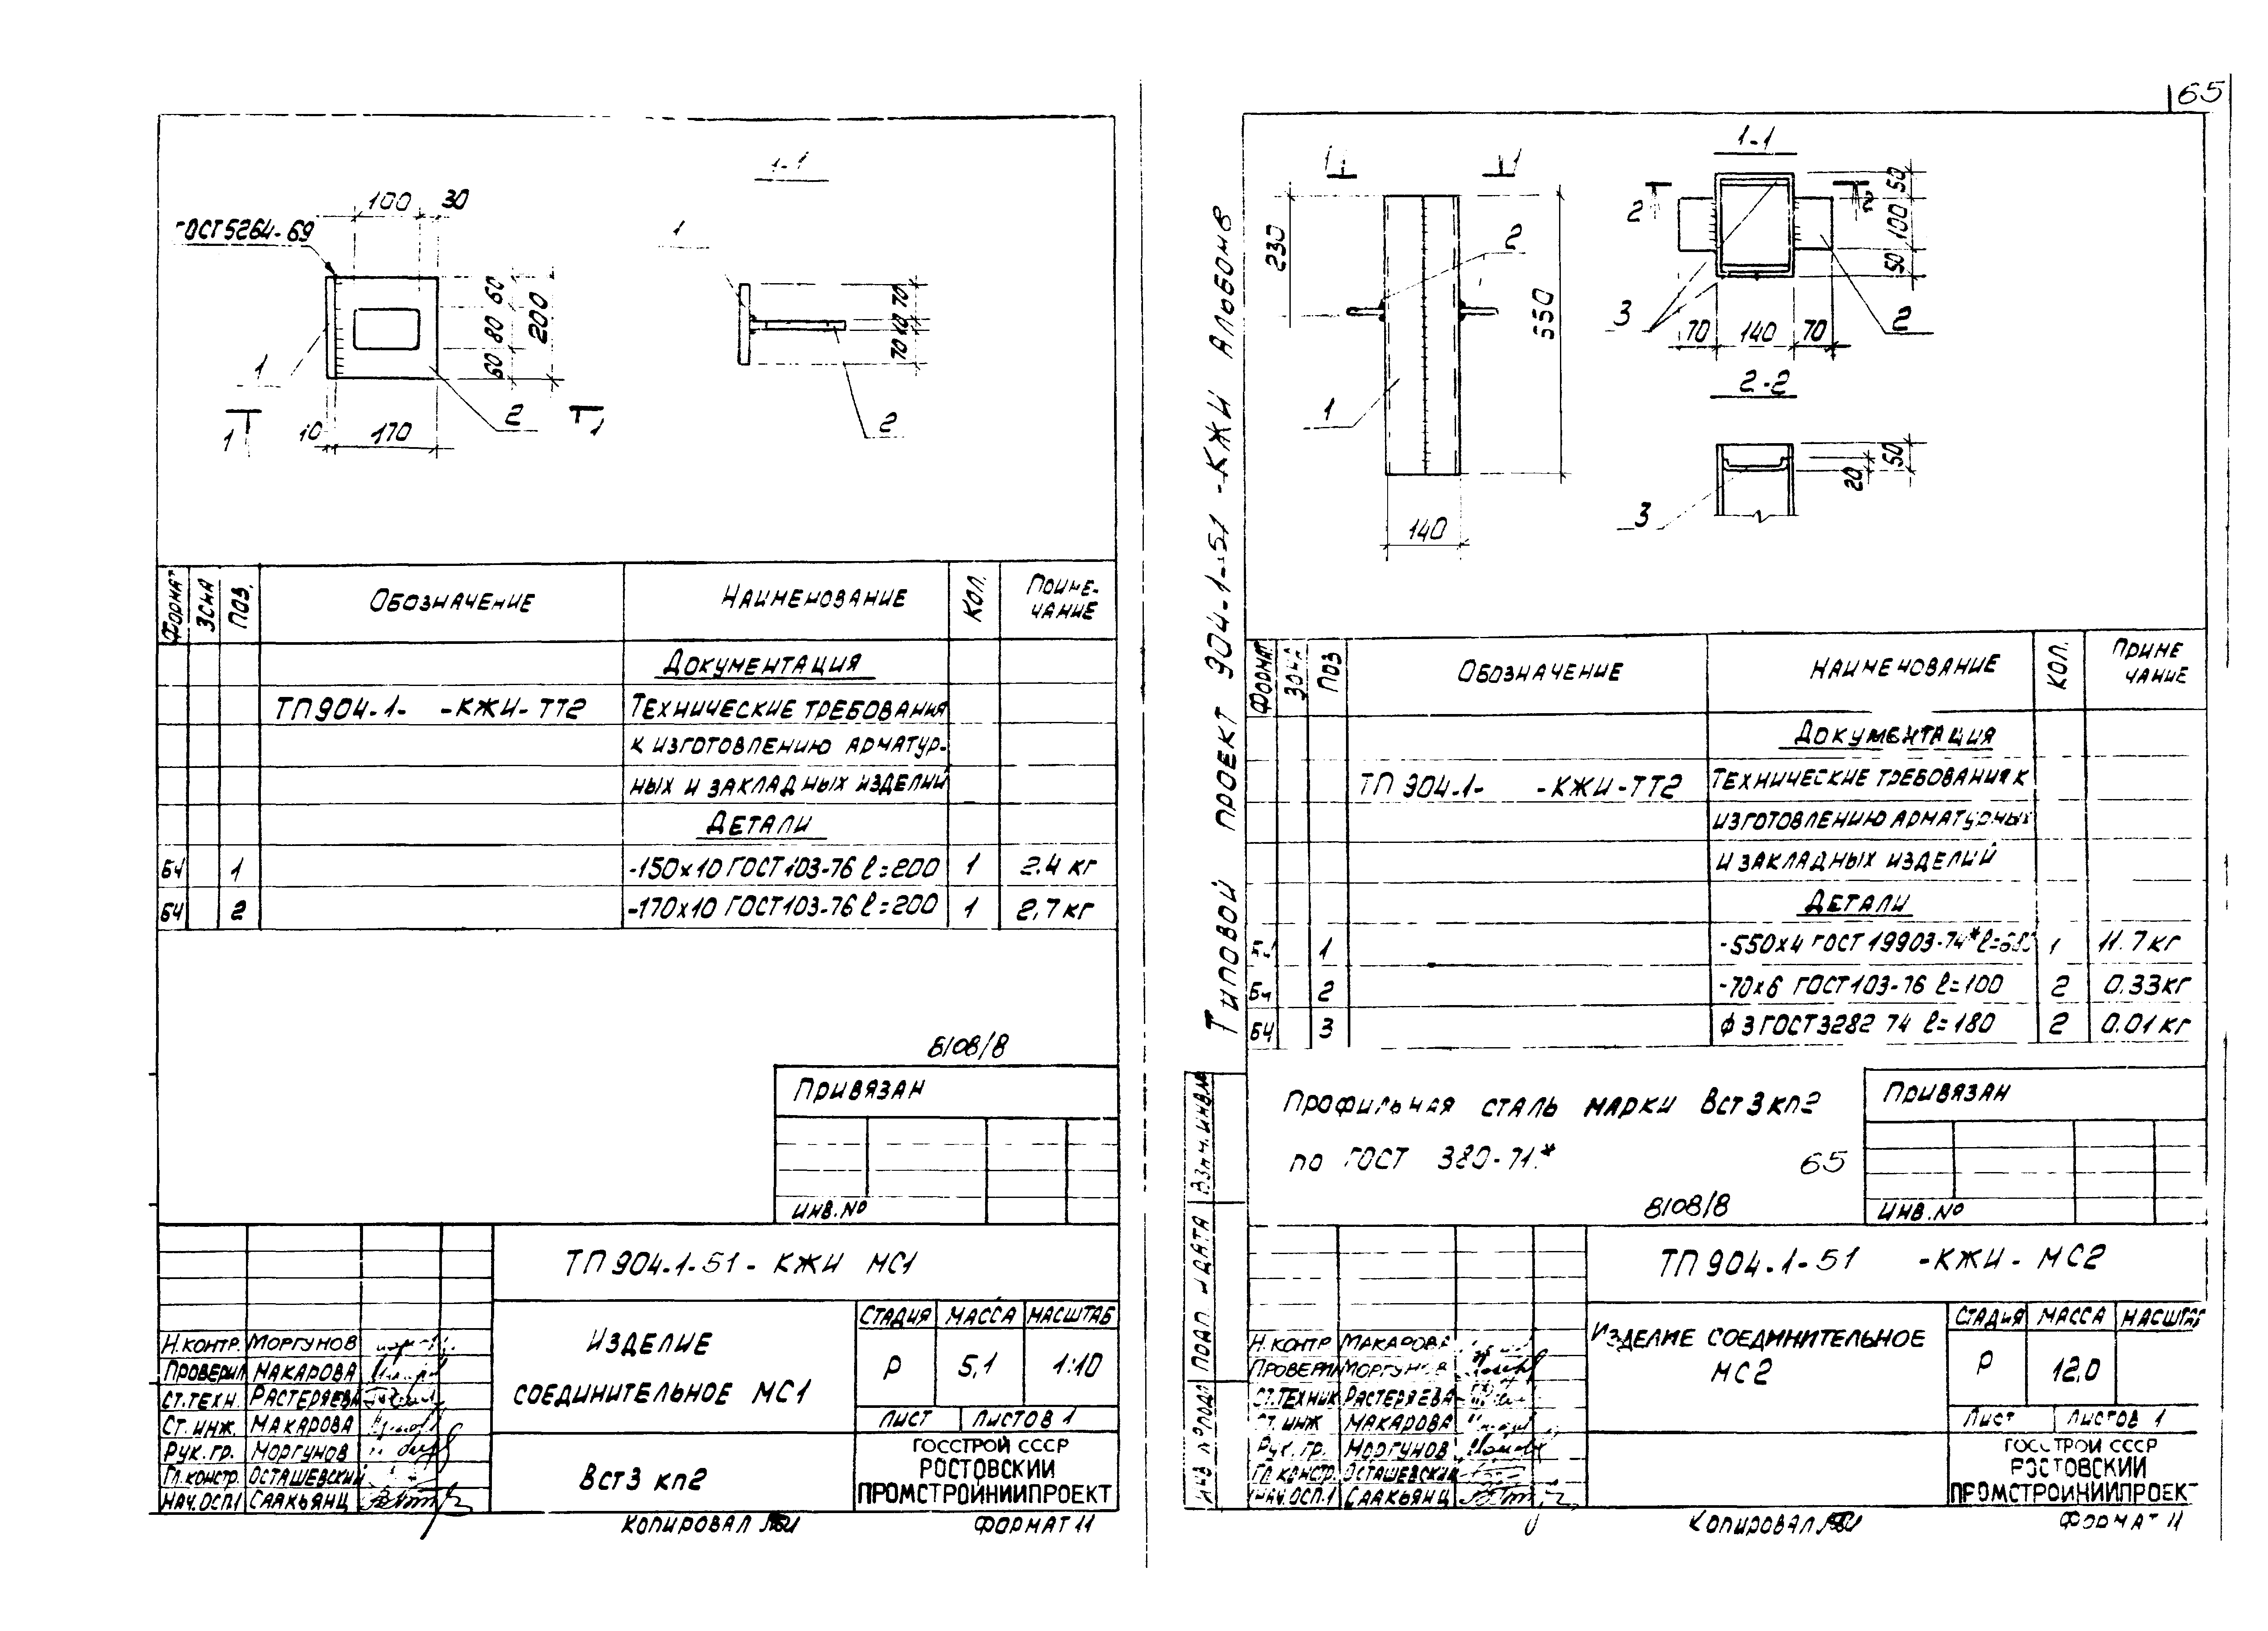 65
1-1
100 30
ГОСТ 5264-69
60 80 60
200
1
2
1 1
10 170
1
70 10 70
2
Формат Зона Поз. Обозначение Наименование Кол. Примечание
Документация
ТП 904-1- -КЖИ-ТТ2 Технические требования
к изготовлению арматур-
ных и закладных изделий
Детали
БЧ 1 -150х10 ГОСТ 103-76 ℓ=200 1 2.4 кг
БЧ 2 -170х10 ГОСТ 103-76 ℓ=200 1 2,7 кг
8108/8
Привязан
Инв.№
ТП 904-1-51- КЖИ МС1
Изделие
соединительное МС1
Стадия Масса Масштаб
Р 5,1 1:10
Лист Листов 1
Вст3 кп2
ГОССТРОЙ СССР
РОСТОВСКИЙ
ПРОМСТРОЙНИИПРОЕКТ
Н.контр. Моргунов
Проверил Макарова
Ст.техн. Растеряева
Ст. инж. Макарова
Рук. гр. Моргунов
Гл.констр. Осташевский
Нач.ОСП.1 Саакьянц
Копировал
Формат 11
Типовой проект 904-1-51 -КЖИ Альбом 8
1 1
230
2
550
1
140
1-1
2 2
50 100 50
3
70 140 70
2
2-2
50
20
3
Формат Зона Поз Обозначение Наименование Кол. Примечание
Документация
ТП 904-1- -КЖИ-ТТ2 Технические требования к
изготовлению арматурных
и закладных изделий
Детали
1 -550х4 ГОСТ 19903-74* 1 11.7 кг
БЧ 2 -70х6 ГОСТ 103-76 ℓ=100 2 0.33 кг
БЧ 3 ф 3 ГОСТ 3282 74 ℓ=180 2 0.01 кг
Профильная сталь марки Вст3кп2
по ГОСТ 380-71.*
65
8108/8
Привязан
Инв.№
Взам.инв.№
Подп и дата
Инв № подл
ТП 904-1-51 -КЖИ- МС2
Изделие соединительное
МС2
Стадия Масса Масштаб
Р 12,0
Лист Листов 1
ГОССТРОЙ СССР
РОСТОВСКИЙ
ПРОМСТРОЙНИИПРОЕКТ
Н. контр Макарова
Проверил Моргунов
Ст.техник Растеряева
Ст. инж Макарова
Рук. гр. Моргунов
Гл констр. Осташевский
Нач.ОСП.1 Саакьянц
Копировал
Формат 11